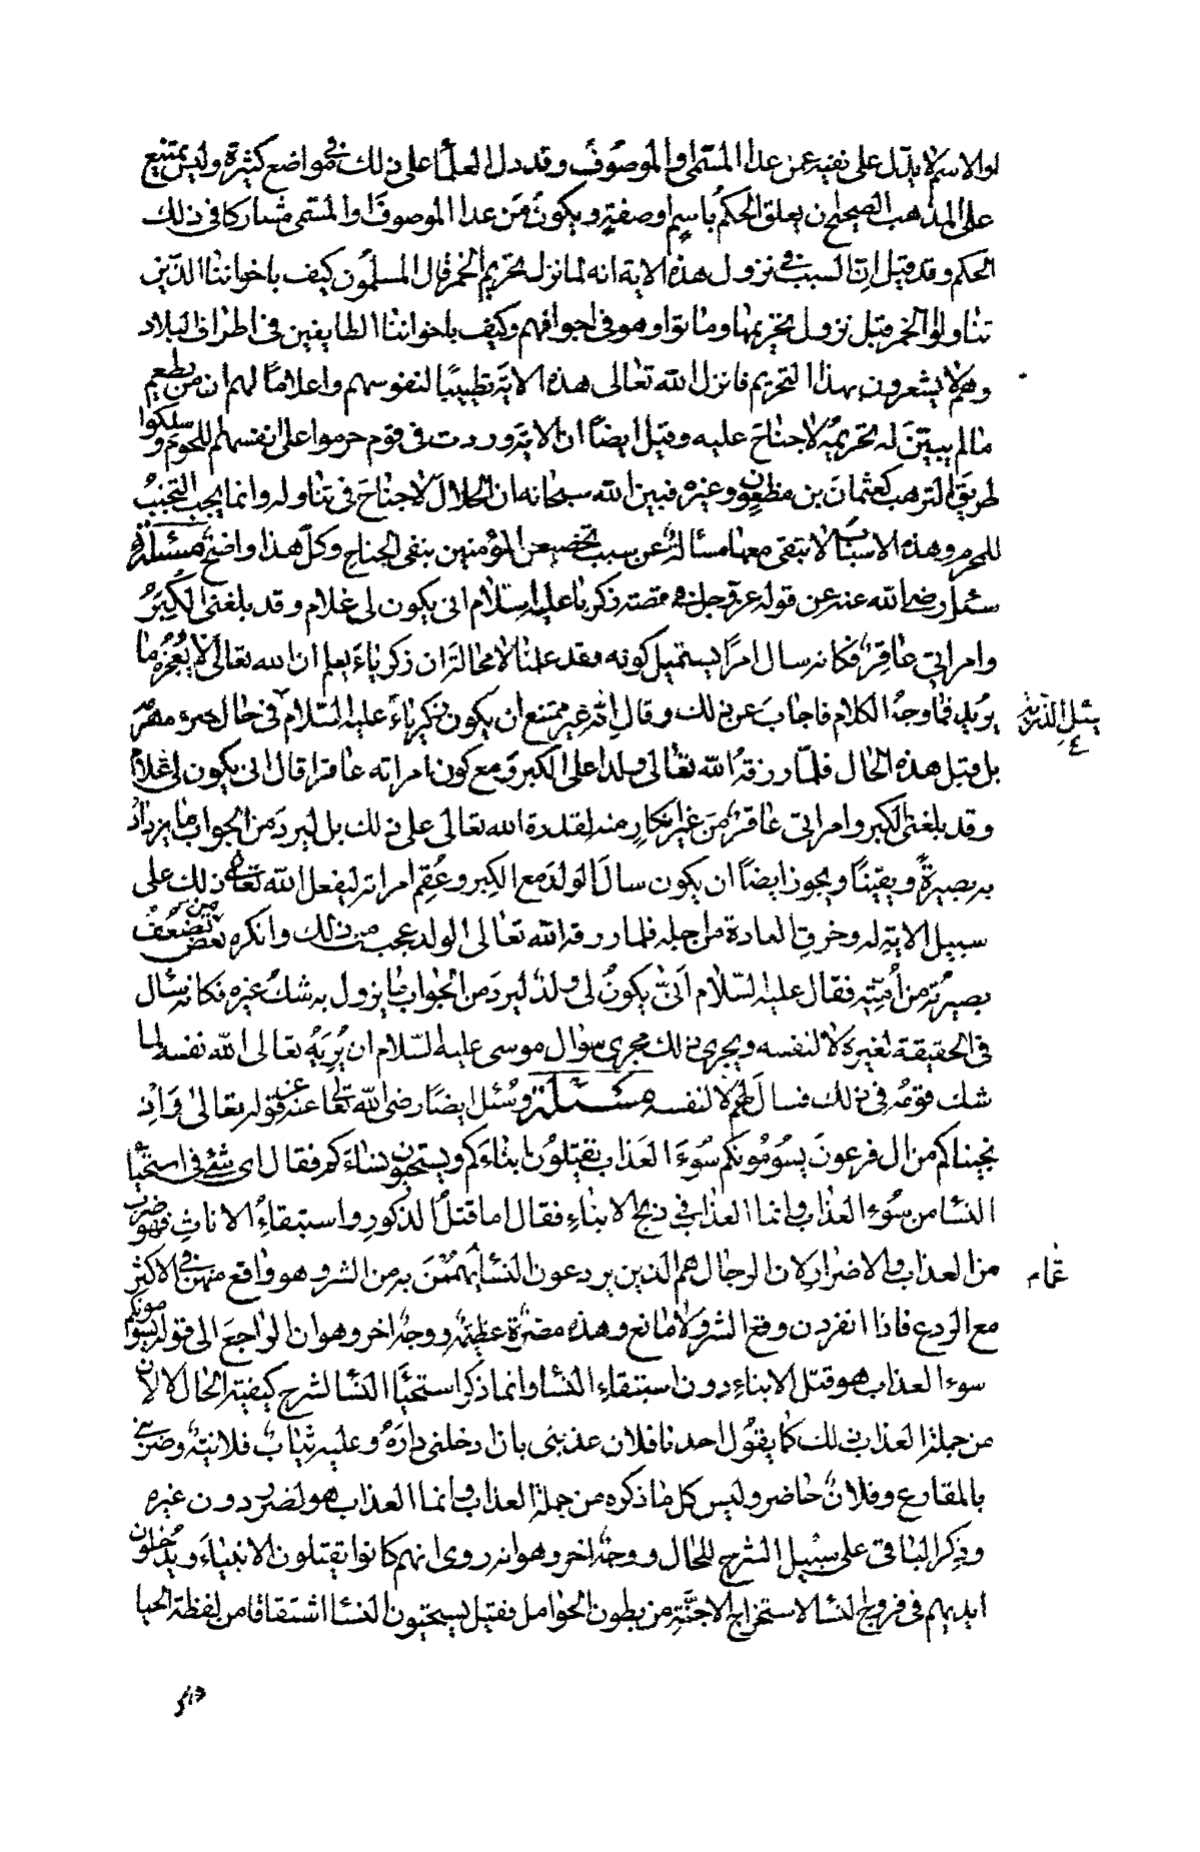 او الاسم لا يدل على نفيه عمن عدا المسمى والموصوف وقد دل العلماء على ذلك في مواضع كثيرة وليس يمتنع
على المذهب الصحيح ان يعلق الحكم باسم او صفة ويكون من عدا الموصوف او المسمى مشاركا في ذلك
الحكم وقد قيل ان السبب في نزول هذه الاية انه لما نزل تحريم الخمر قال المسلمون كيف باخواننا الذين
تناولوا الخمر قبل نزول تحريمها وماتوا وهو في اجوافهم وكيف باخواننا الطايفين في اطراف البلاد
وهم لا يشعرون بهذا التحريم فانزل الله تعالى هذه الاية تطييبا لنفوسهم واعلاما لهم ان من يطعم
ما لم يبين له تحريمه لا جناح عليه وقيل ايضا ان الاية وردت في قوم حرموا على انفسهم اللحوم وسلكوا
طريق الترهب كعثمان بن مظعون وغيره فبين الله سبحانه ان الحلال لا جناح في تناوله وانما يجب التجنب
للمحرم وهذه الاسباب لا تبقى معها مسالة عن سبب تخصيص المؤمنين بنفي الجناح وكل هذا واضح مسئلة
سئل رضي الله عنه عن قوله عز وجل في قصة زكريا عليه السلام انى يكون لي غلام وقد بلغني الكبر
وامراتي عاقر فكانه سال امرا يستحيل كونه وقد علمنا لا محالة ان زكرياء يعلم ان الله تعالى لا يعجزه ما
يريد فما وجه الكلام فاجاب عن ذلك وقال انه غير ممتنع ان يكون زكرياء عليه السلام في حال
بل قبل هذه الحال فلما رزقه الله تعالى ولدا على الكبر ومع كون امراته عاقرا قال انى يكون لي غلام
وقد بلغني الكبر وامراتي عاقر من غير انكار منه لقدرة الله تعالى على ذلك بل ليرد من الجواب ما يزداد
به بصيرة ويقينا ويجوز ايضا ان يكون سال الولد مع الكبر وعقم امراته ليفعل الله تعالى ذلك على
سبيل الاية له وخرق العادة من اجله فلما رزقه الله تعالى الولد عجب من ذلك وانكره بعض من تضعف
بصيرته من امته فقال عليه السلام انى يكون لي ولد ليرد من الجواب ما يزول به شك غيره فكانه سال
في الحقيقة لغيره لا لنفسه ويجري ذلك مجرى سؤال موسى عليه السلام ان يريه تعالى الله نفسه لما
شك قومه في ذلك فسال لهم لا لنفسه مسئلة وسئل ايضا رضي الله تعالى عنه عن قوله تعالى واذ
نجيناكم من ال فرعون يسومونكم سوء العذاب يقتلون ابناءكم ويستحيون نساءكم فقال اي شئ في استحياء
النسا من سوء العذاب وانما العذاب في ذبح الابناء فقال اما قتل الذكور واستبقاء الاناث فهو ضرب
من العذاب والاضرار لان الرجال هم الذين يردعون النسا يهممن به من الشر وهو واقع منهن في الاكثر
مع الردع فاذا انفردن وقع الشر ولا مانع وهذه مضرة عظيمة ووجه اخر وهو ان الراجع الى قوله يسومونكم
سوء العذاب هو قتل الابناء دون استبقاء النسا وانما ذكر استحياء النسا لشرح كيفية الحال لا لان
من جملة العذاب ذلك كما يقول احدنا فلان عذبني بان ادخلني داره وعليه ثياب فلانية وضربني
بالمقارع وفلان حاضر وليس كل ما ذكره من جملة العذاب وانما العذاب هو لضرب دون غيره
وذكر الباقي على سبيل الشرح للحال ووجه اخر وهو انه روى انهم كانوا يقتلون الانبياء ويدخلون
ايديهم في فروج النسا لاستخراج الاجنة من بطون الحوامل فقيل يستحيون النسا اشتقاقا من لفظة الحيا